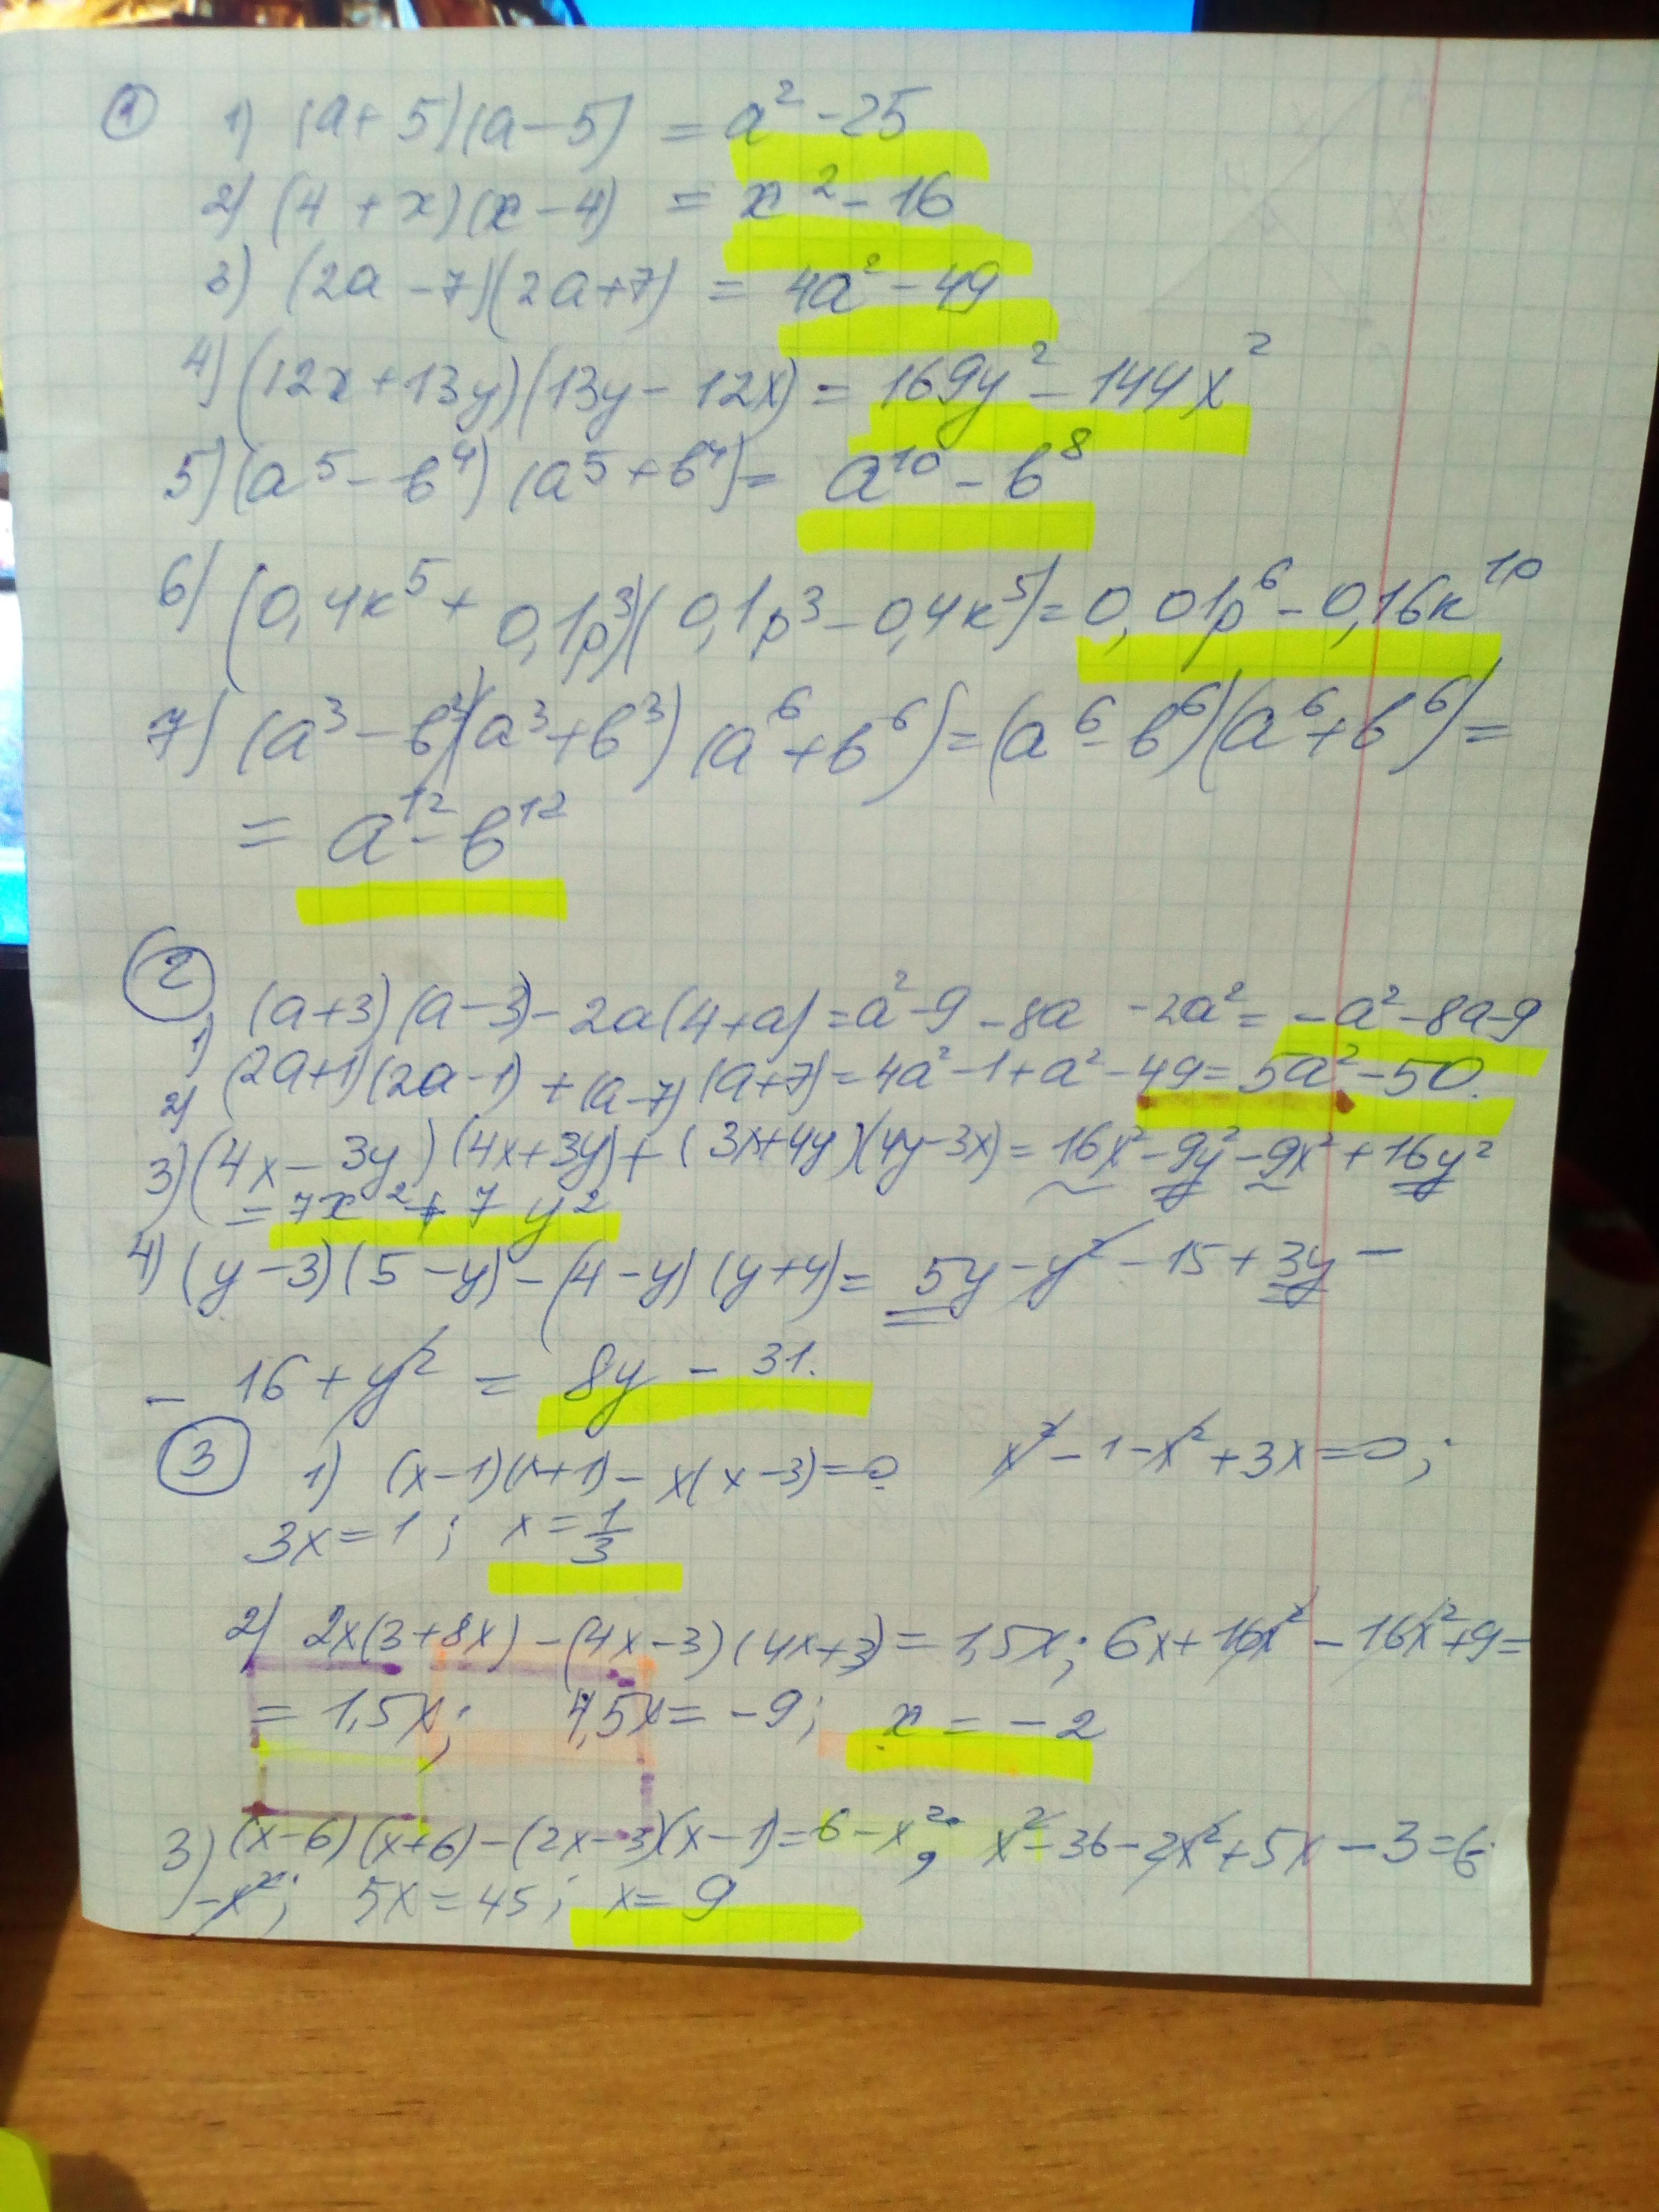 ① 1) (a+5)(a-5) = a² - 25
2) (4+x)(x-4) = x² - 16
3) (2a-7)(2a+7) = 4a² - 49
4) (12x+13y)(13y-12x) = 169y² - 144x²
5) (a⁵-b⁴)(a⁵+b⁴) = a¹⁰ - b⁸
6) (0,4k⁵+0,1p³)(0,1p³-0,4k⁵) = 0,01p⁶ - 0,16k¹⁰
7) (a³-b³)(a³+b³)(a⁶+b⁶) = (a⁶-b⁶)(a⁶+b⁶) =
= a¹² - b¹²
②
1) (a+3)(a-3) - 2a(4+a) = a² - 9 - 8a - 2a² = -a² - 8a - 9
2) (2a+1)(2a-1) + (a-7)(a+7) = 4a² - 1 + a² - 49 = 5a² - 50.
3) (4x-3y)(4x+3y) + (3x+4y)(4y-3x) = 16x² - 9y² - 9x² + 16y²
= 7x² + 7y²
4) (y-3)(5-y) - (4-y)(y+4) = 5y - y² - 15 + 3y -
- 16 + y² = 8y - 31.
③ 1) (x-1)(x+1) - x(x-3) = 0 x² - 1 - x² + 3x = 0;
3x = 1; x = 1/3
2) 2x(3+8x) - (4x-3)(4x+3) = 1,5x; 6x + 16x² - 16x² + 9 =
= 1,5x; 4,5x = -9; x = -2
3) (x-6)(x+6) - (2x-3)(x-1) = 6 - x²; x² - 36 - 2x² + 5x - 3 = 6
- x²; 5x = 45; x = 9